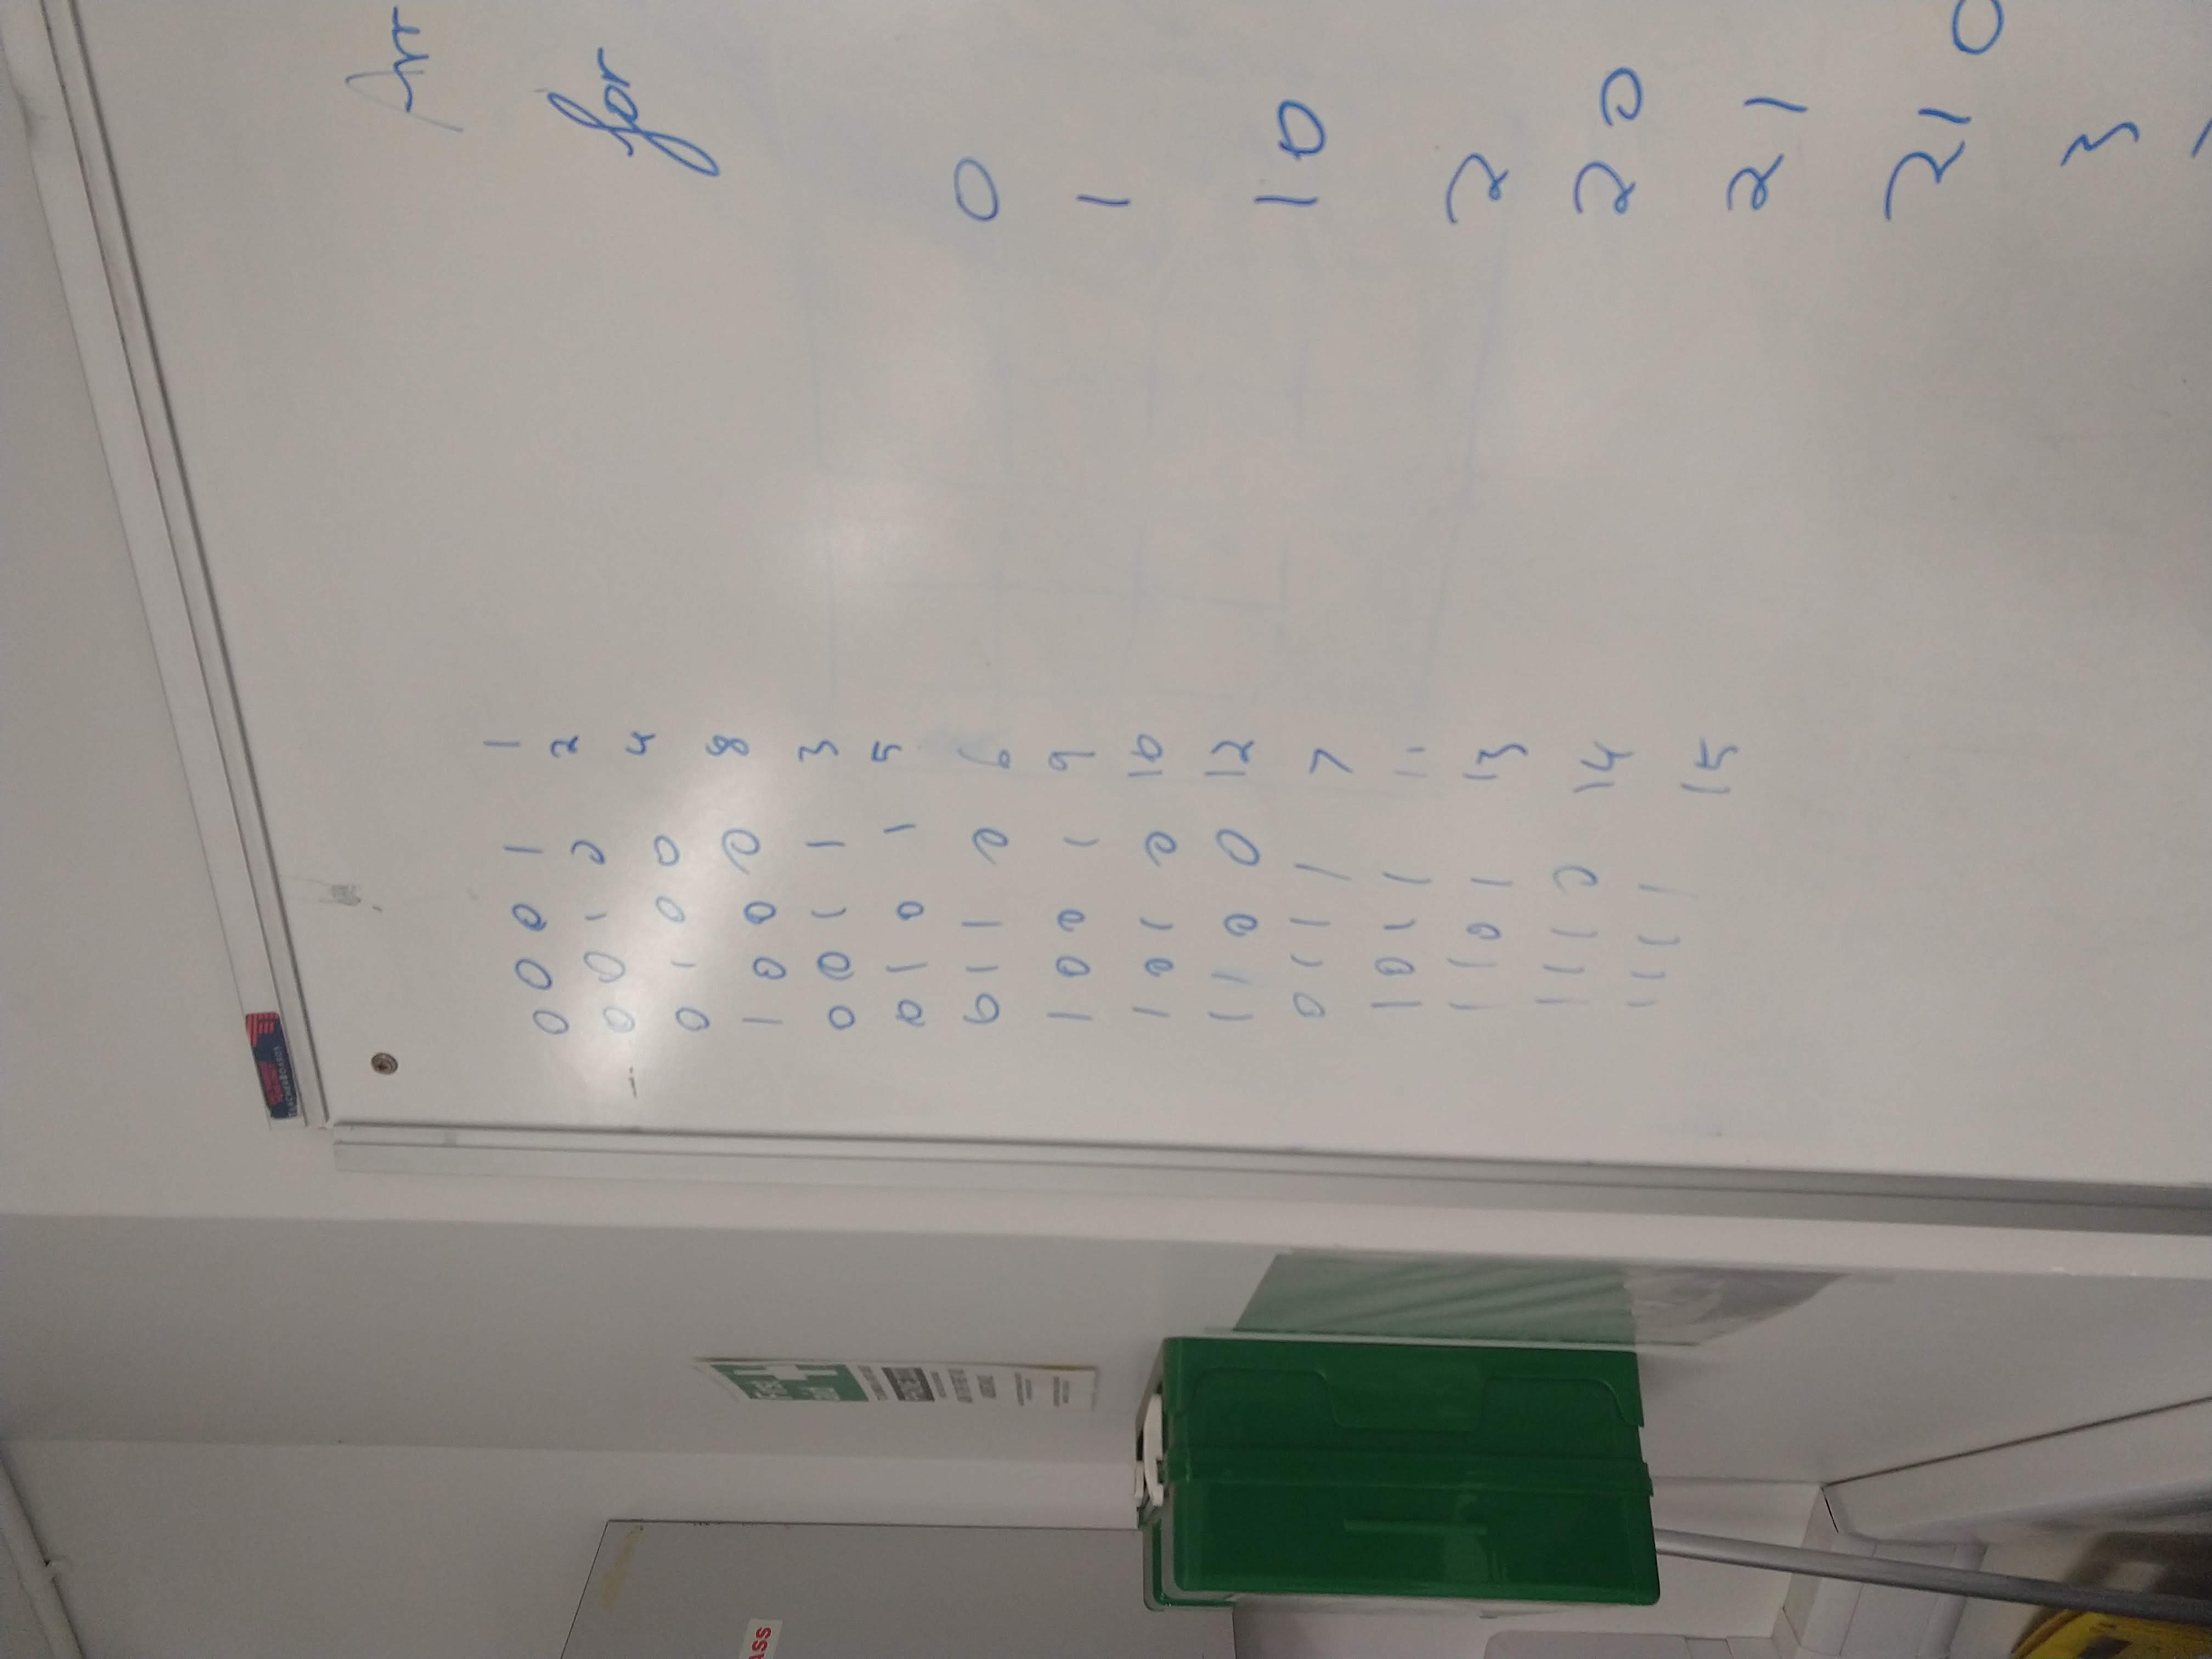 TEACHERBOARDS
0 0 0 1 1
0 0 1 0 2
0 1 0 0 4
1 0 0 0 8
0 0 1 1 3
0 1 0 1 5
0 1 1 0 6
1 0 0 1 9
1 0 1 0 10
1 1 0 0 12
0 1 1 1 7
1 0 1 1 11
1 1 0 1 13
1 1 1 0 14
1 1 1 1 15
Arr
for
0
1
1 0
2
2 0
2 1
2 1 0
3
ASS
First
aid